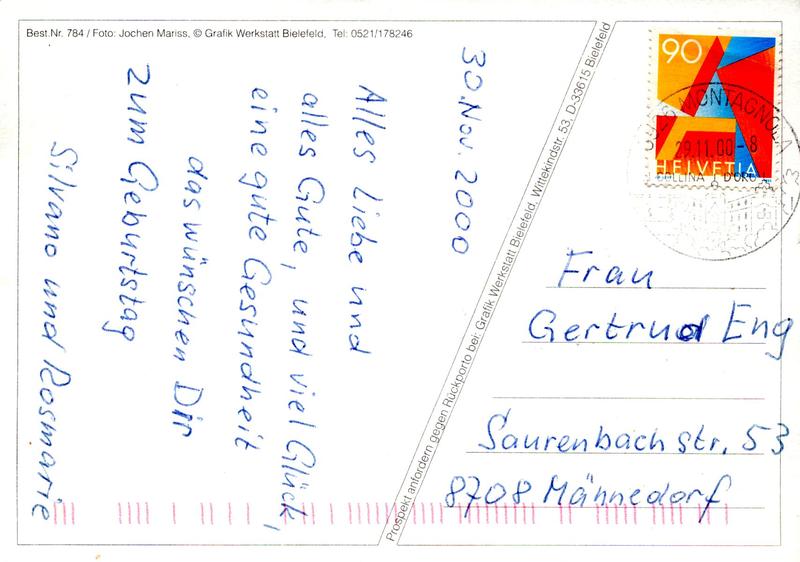 Best.Nr. 784 / Foto: Jochen Mariss, © Grafik Werkstatt Bielefeld, Tel: 0521/178246
30. Nov. 2000
Alles Liebe und
alles Gute, und viel Glück,
eine gute Gesundheit
das wünschen Dir
zum Geburtstag
Silvano und Rosmarie
Prospekt anfordern gegen Rückporto bei: Grafik Werkstatt Bielefeld, Wittekindstr. 53, D-33615 Bielefeld
90
HELVETIA
MONTAGNOLA
29.11.00-8
COLLINA D'ORO
Frau
Gertrud Eng
Saurenbachstr. 53
8708 Männedorf